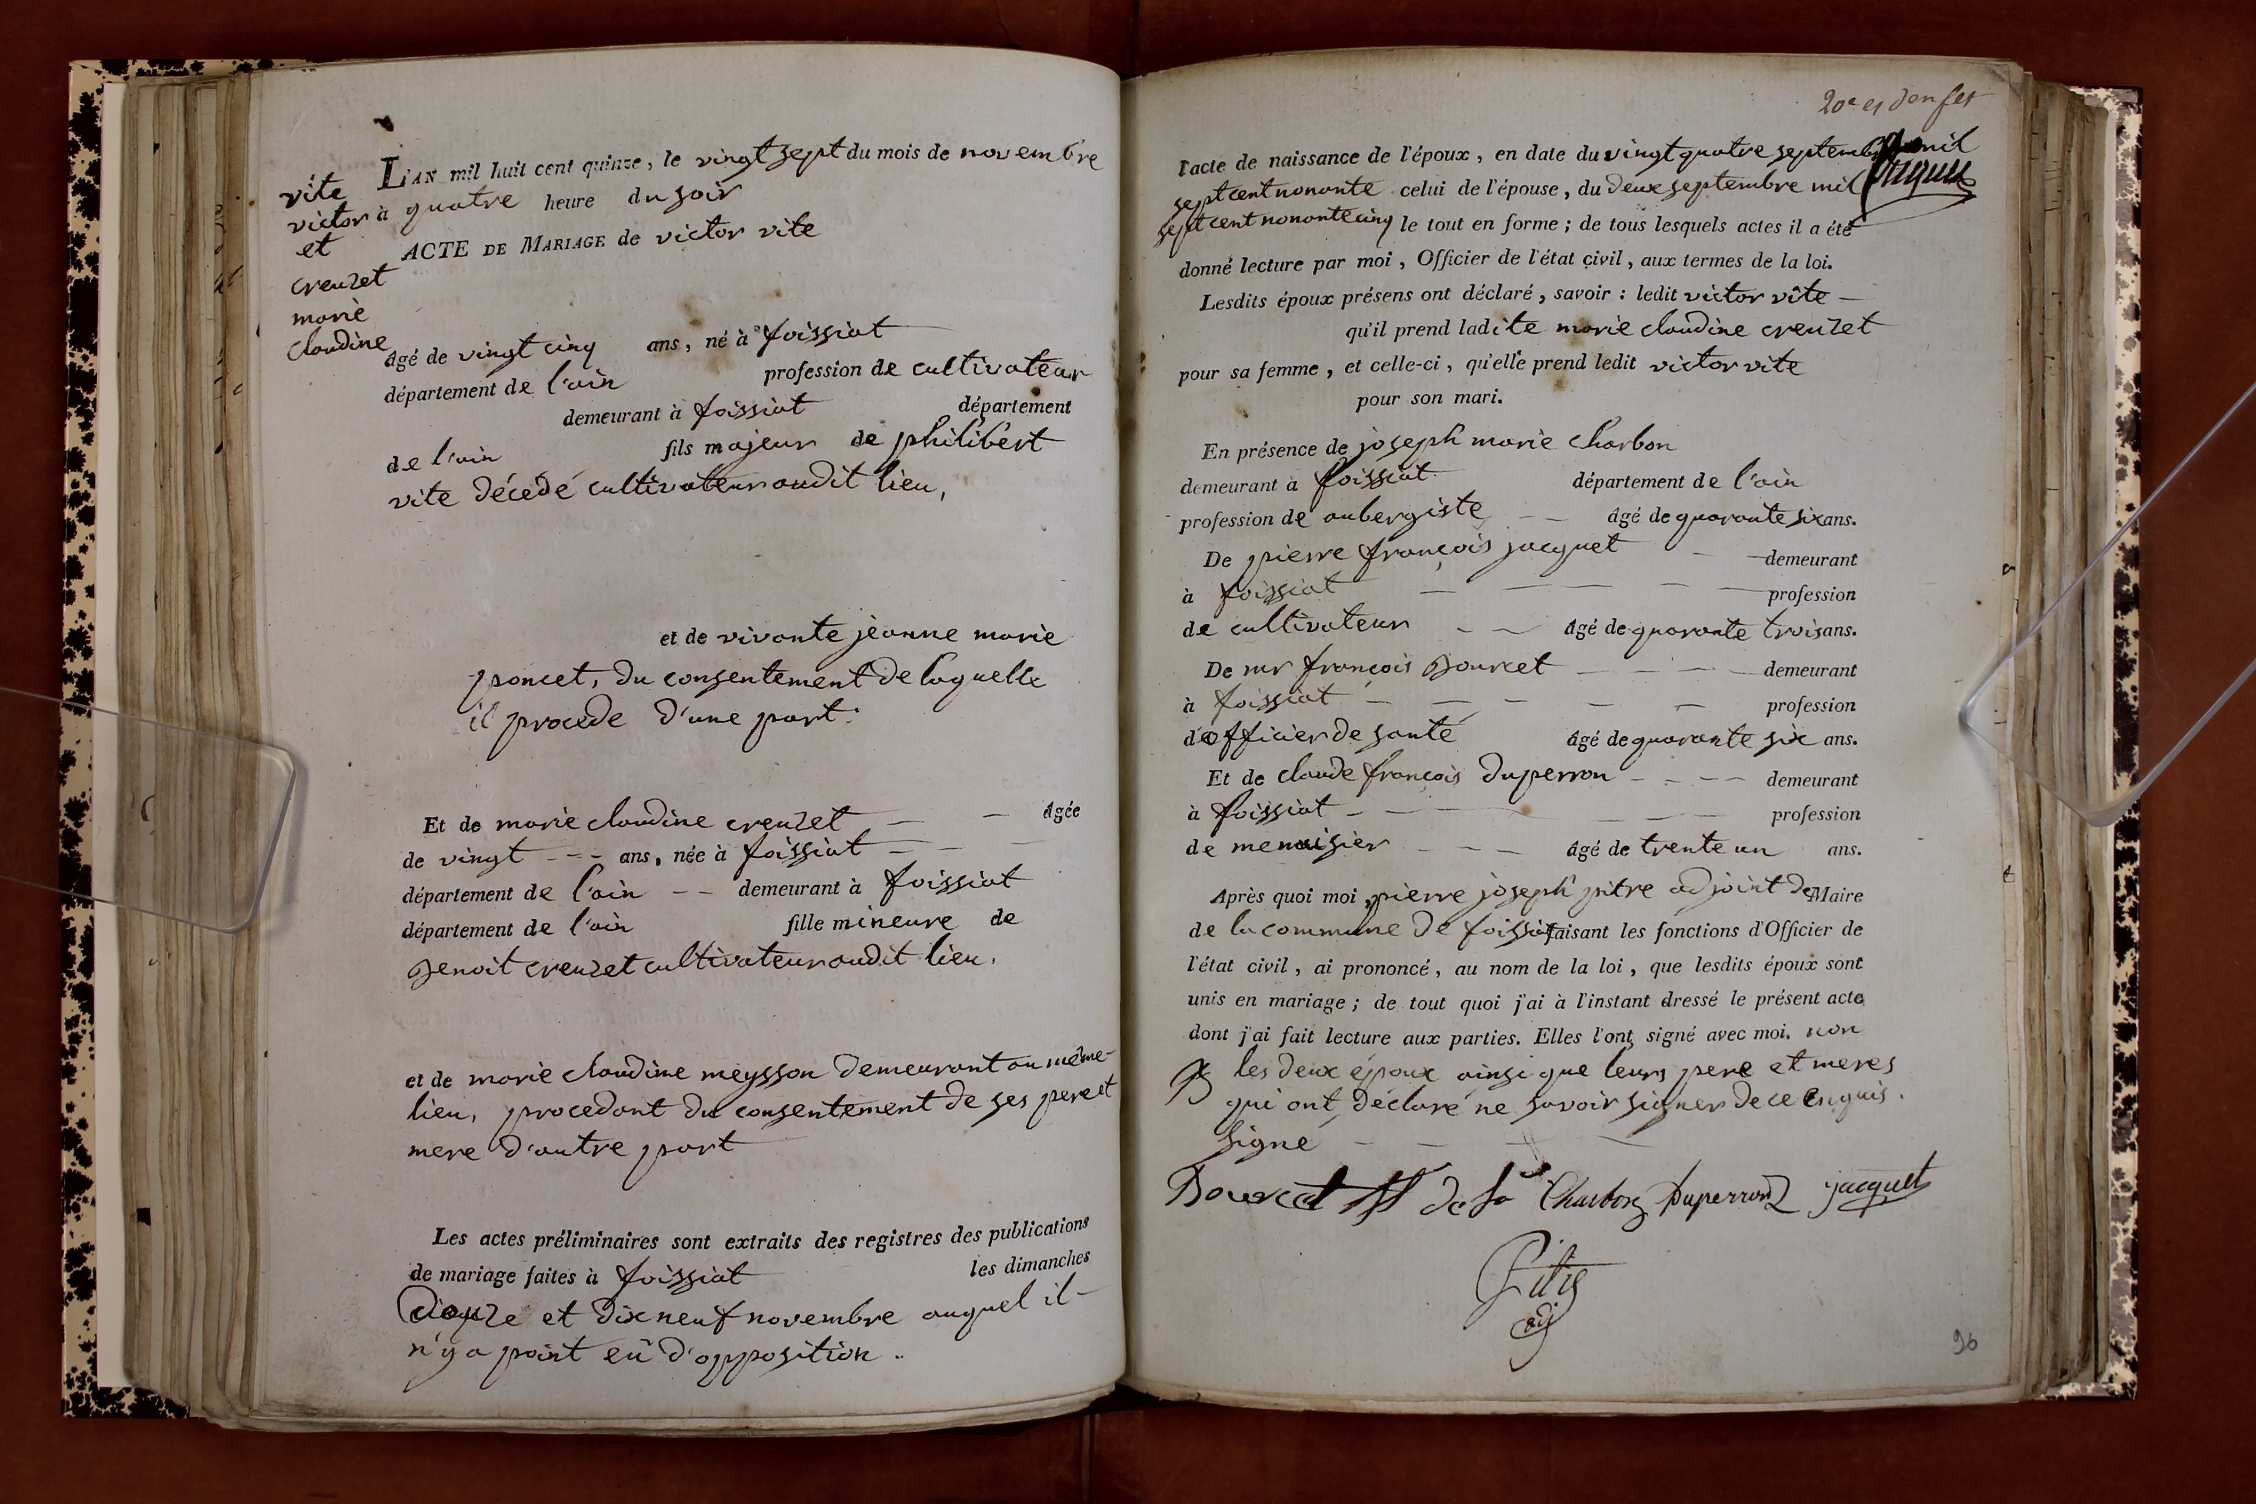 vite
victor
et
creuzet
marie
claudine
L'AN mil huit cent quinze, le vingt sept du mois de novembre
à quatre heure du soir
ACTE DE MARIAGE de victor vite
âgé de vingt cinq ans, né à foissiat
département de l'ain profession de cultivateur
demeurant à foissiat département
de l'ain fils majeur de philibert
vite décedé cultivateur audit lieu,
et de vivante jeanne marie
poncet, du consentement de laquelle
il procede d'une part.
Et de marie claudine creuzet âgée
de vingt ans, née à foissiat
département de l'ain demeurant à foissiat
département de l'ain fille mineure de
Benoit creuzet cultivateur audit lieu,
et de marie claudine meysson demeurant au même
lieu, procedant du consentement de ses pere et
mere d'autre part
Les actes préliminaires sont extraits des registres des publications
de mariage faites à foissiat les dimanches
douze et dix neuf novembre auquel il
n'y a point eû d'opposition.
20e et
l'acte de naissance de l'époux, en date du vingt quatre septembre mil
sept cent nonante celui de l'épouse, du deux septembre mil
sept cent nonante cinq le tout en forme ; de tous lesquels actes il a été
donné lecture par moi, Officier de l'état civil, aux termes de la loi.
Lesdits époux présens ont déclaré, savoir : ledit victor vîte
qu'il prend ladite marie claudine creuzet
pour sa femme, et celle-ci, qu'elle prend ledit victor vite
pour son mari.
En présence de joseph marie charbon
demeurant à foissiat département de l'ain
profession de aubergiste âgé de quarante six ans.
De pierre françois jacquet demeurant
à foissiat profession
de cultivateur âgé de quarante trois ans.
De mr françois Bourcet demeurant
à foissiat profession
de officier de santé âgé de quarante six ans.
Et de claude françois duperron demeurant
à foissiat profession
de menuisier âgé de trente un ans.
Après quoi moi, pierre joseph pitre adjoint de Maire
de la commune de foissiat faisant les fonctions d'Officier de
l'état civil, ai prononcé, au nom de la loi, que lesdits époux sont
unis en mariage ; de tout quoi j'ai à l'instant dressé le présent acte
dont j'ai fait lecture aux parties. Elles l'ont signé avec moi. non
les deux époux ainsi que leurs pere et meres
qui ont déclaré ne savoir signer de ce enquis.
signé
Bourcet off de sé Charbon Duperron jacquet
Pitre
adj
96